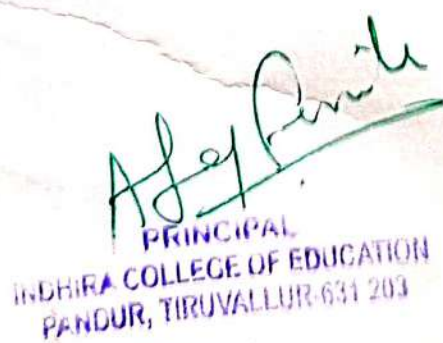 PRINCIPAL
INDHIRA COLLEGE OF EDUCATION
PANDUR, TIRUVALLUR-631 203